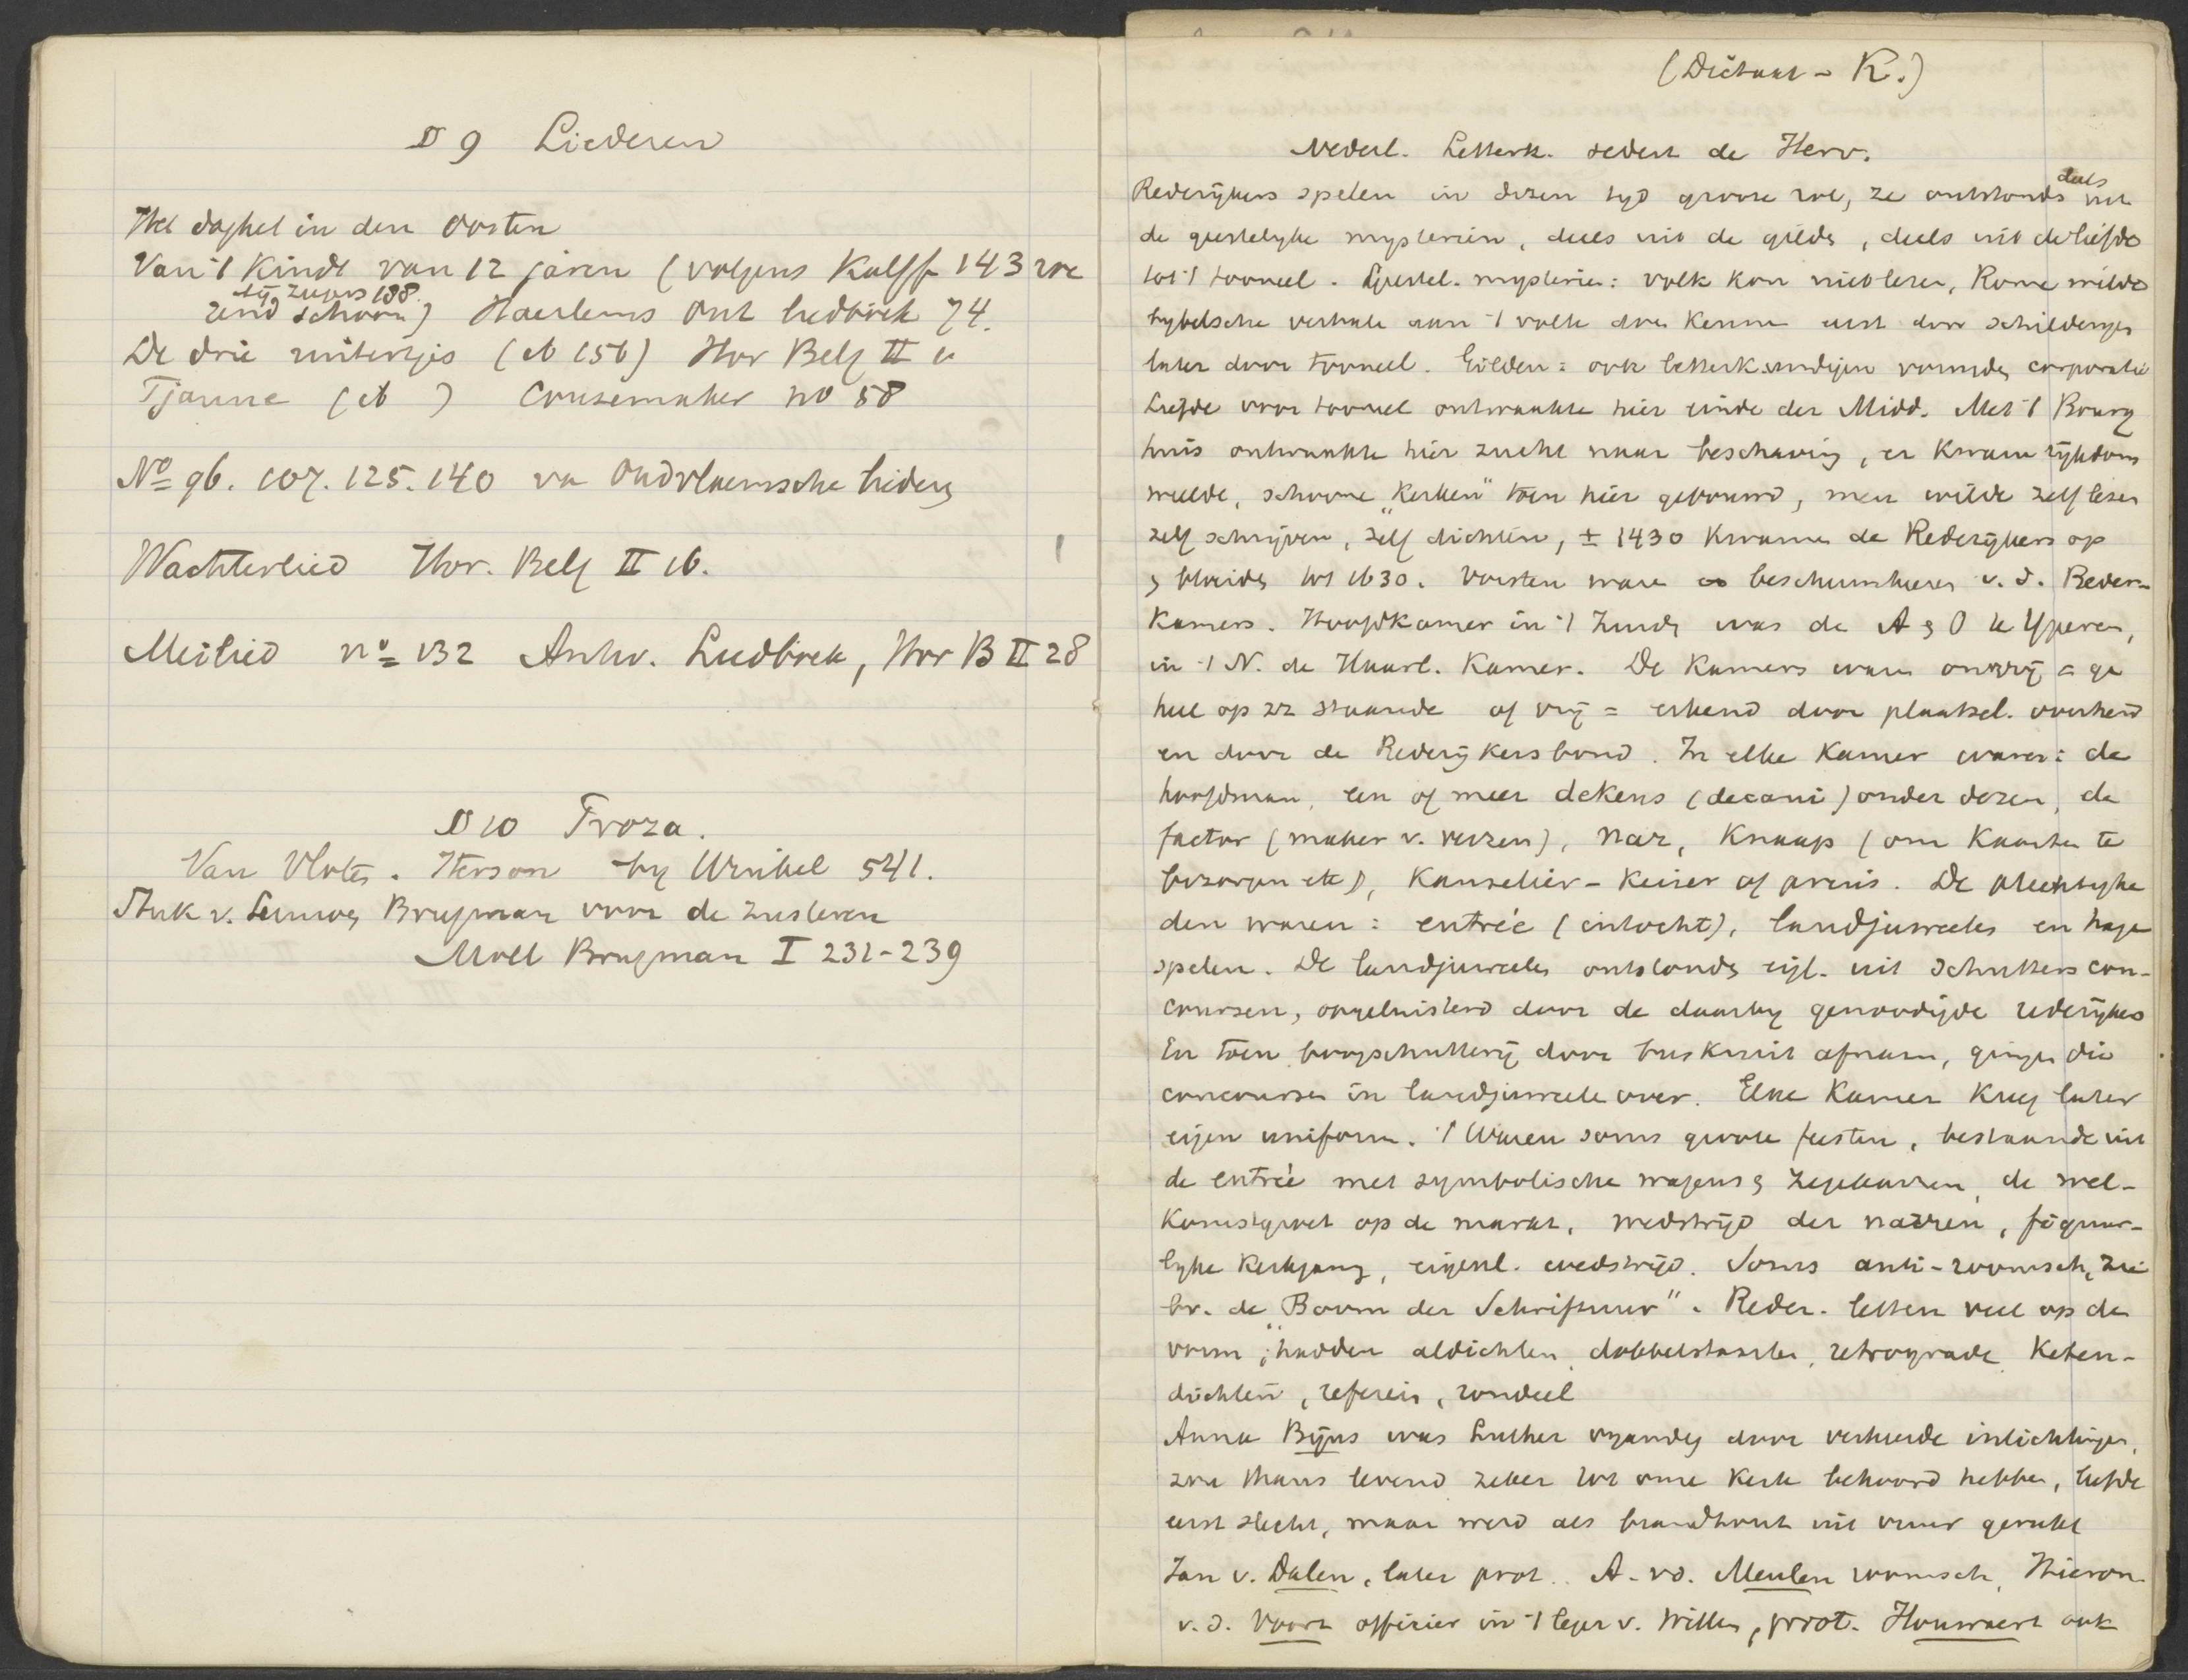 D 9 Liederen
Het daghet in den Oosten
Van 't Kindt van 12 jaren (volgens Kalff 143 roe
zend schoon) Haerlems Oud liedboek 74.
De drie ruitertjes (ib 156) Hor Belg II
Tjanne (ib ) Coussemaker no 58
No 96. 107. 125. 140 van Oudvlaemsche liederen
Wachterlied Hor. Belg II 16.
Meilied no 132 Antw. Liedboek, Hor B II 28
D 10 Proza.
Van Vloten. by 541.
Stuk v. Brugman voor de zusteren
Moll Brugman I 231-239
(Dictaat - K.)
Nederl. Letterk. sedert de Herv.
Rederijkers spelen in dezen tijd groote rol, ze ontstonden deels uit
de geestelyke mysteriën, deels uit de gilden, deels uit de liefde
tot 't tooneel. Geestel. mysteriën: volk kon niet lezen, Rome wilde
bybelsche verhalen aan 't volk doen kennen eerst door schilderijen
later door tooneel. Gilden: ook letterkundigen vormden corporatie
Liefde voor tooneel ontwaakte hier einde der Midd. Met 't Bourg
huis ontwaakte hier zucht naar beschaving, er kwam rijkdom
weelde, schoone „kerken" toen hier gebouwd, men wilde zelf lezen
zelf schrijven, zelf dichten, ± 1430 kwamen de Rederijkers op
& bloeiden tot 1630. Vorsten waren beschermheeren v.d. Reder-
Kamers. Hoofdkamer in 't Zuiden was de A & O te Yperen,
in 't N. de Haarl. Kamer. De kamers waren onvrij = ge
heel op zz staande of vrij = erkend door plaatsel. overheid
en door de Rederijkersbond. In elke Kamer waren: de
hoofdman, een of meer dekens (decani) onder dezen, de
factor (maker v. verzen), nar, Knaap (om kaarten te
bezorgen etc), Kanselier - Keizer of prins. De plechtighe
den waren: entrée (intocht), landjuweelen en hage
spelen. De landjuweelen ontstonden eigl. uit schutters con-
coursen, opgeluisterd door de daarby genoodigde rederijkers
En toen boogschutterij door buskruit afnam, gingen die
concoursen in landjuweelen over. Elke Kamer kreeg later
eigen uniform. 't Waren soms groote feesten, bestaande uit
de entrée met symbolische wagens & zegekarren, de wel-
komstgroet op de markt, wedstrijd der narren, figuur-
lyke kerkgang, eigenl. wedstrijd. Soms anti-roomsch, zie
bv. de „Boom der Schriftuur". Reder. letten veel op den
vorm; hadden aldichten, dobbelsteerten, retrograde, Keten-
dichten, referein, rondeel
Anna Bijns was Luther vyandig door verkeerde inlichtingen,
zou thans levend zeker tot onze kerk behoord hebben, leefde
eerst slecht, maar werd als brandhout uit vuur gerukt
Jan v. Dalen, later prot. A. vd. Meulen roomsch, Hieron.
v.d. Voort officier in 't leger v. Willem, prot. Houwaert ook